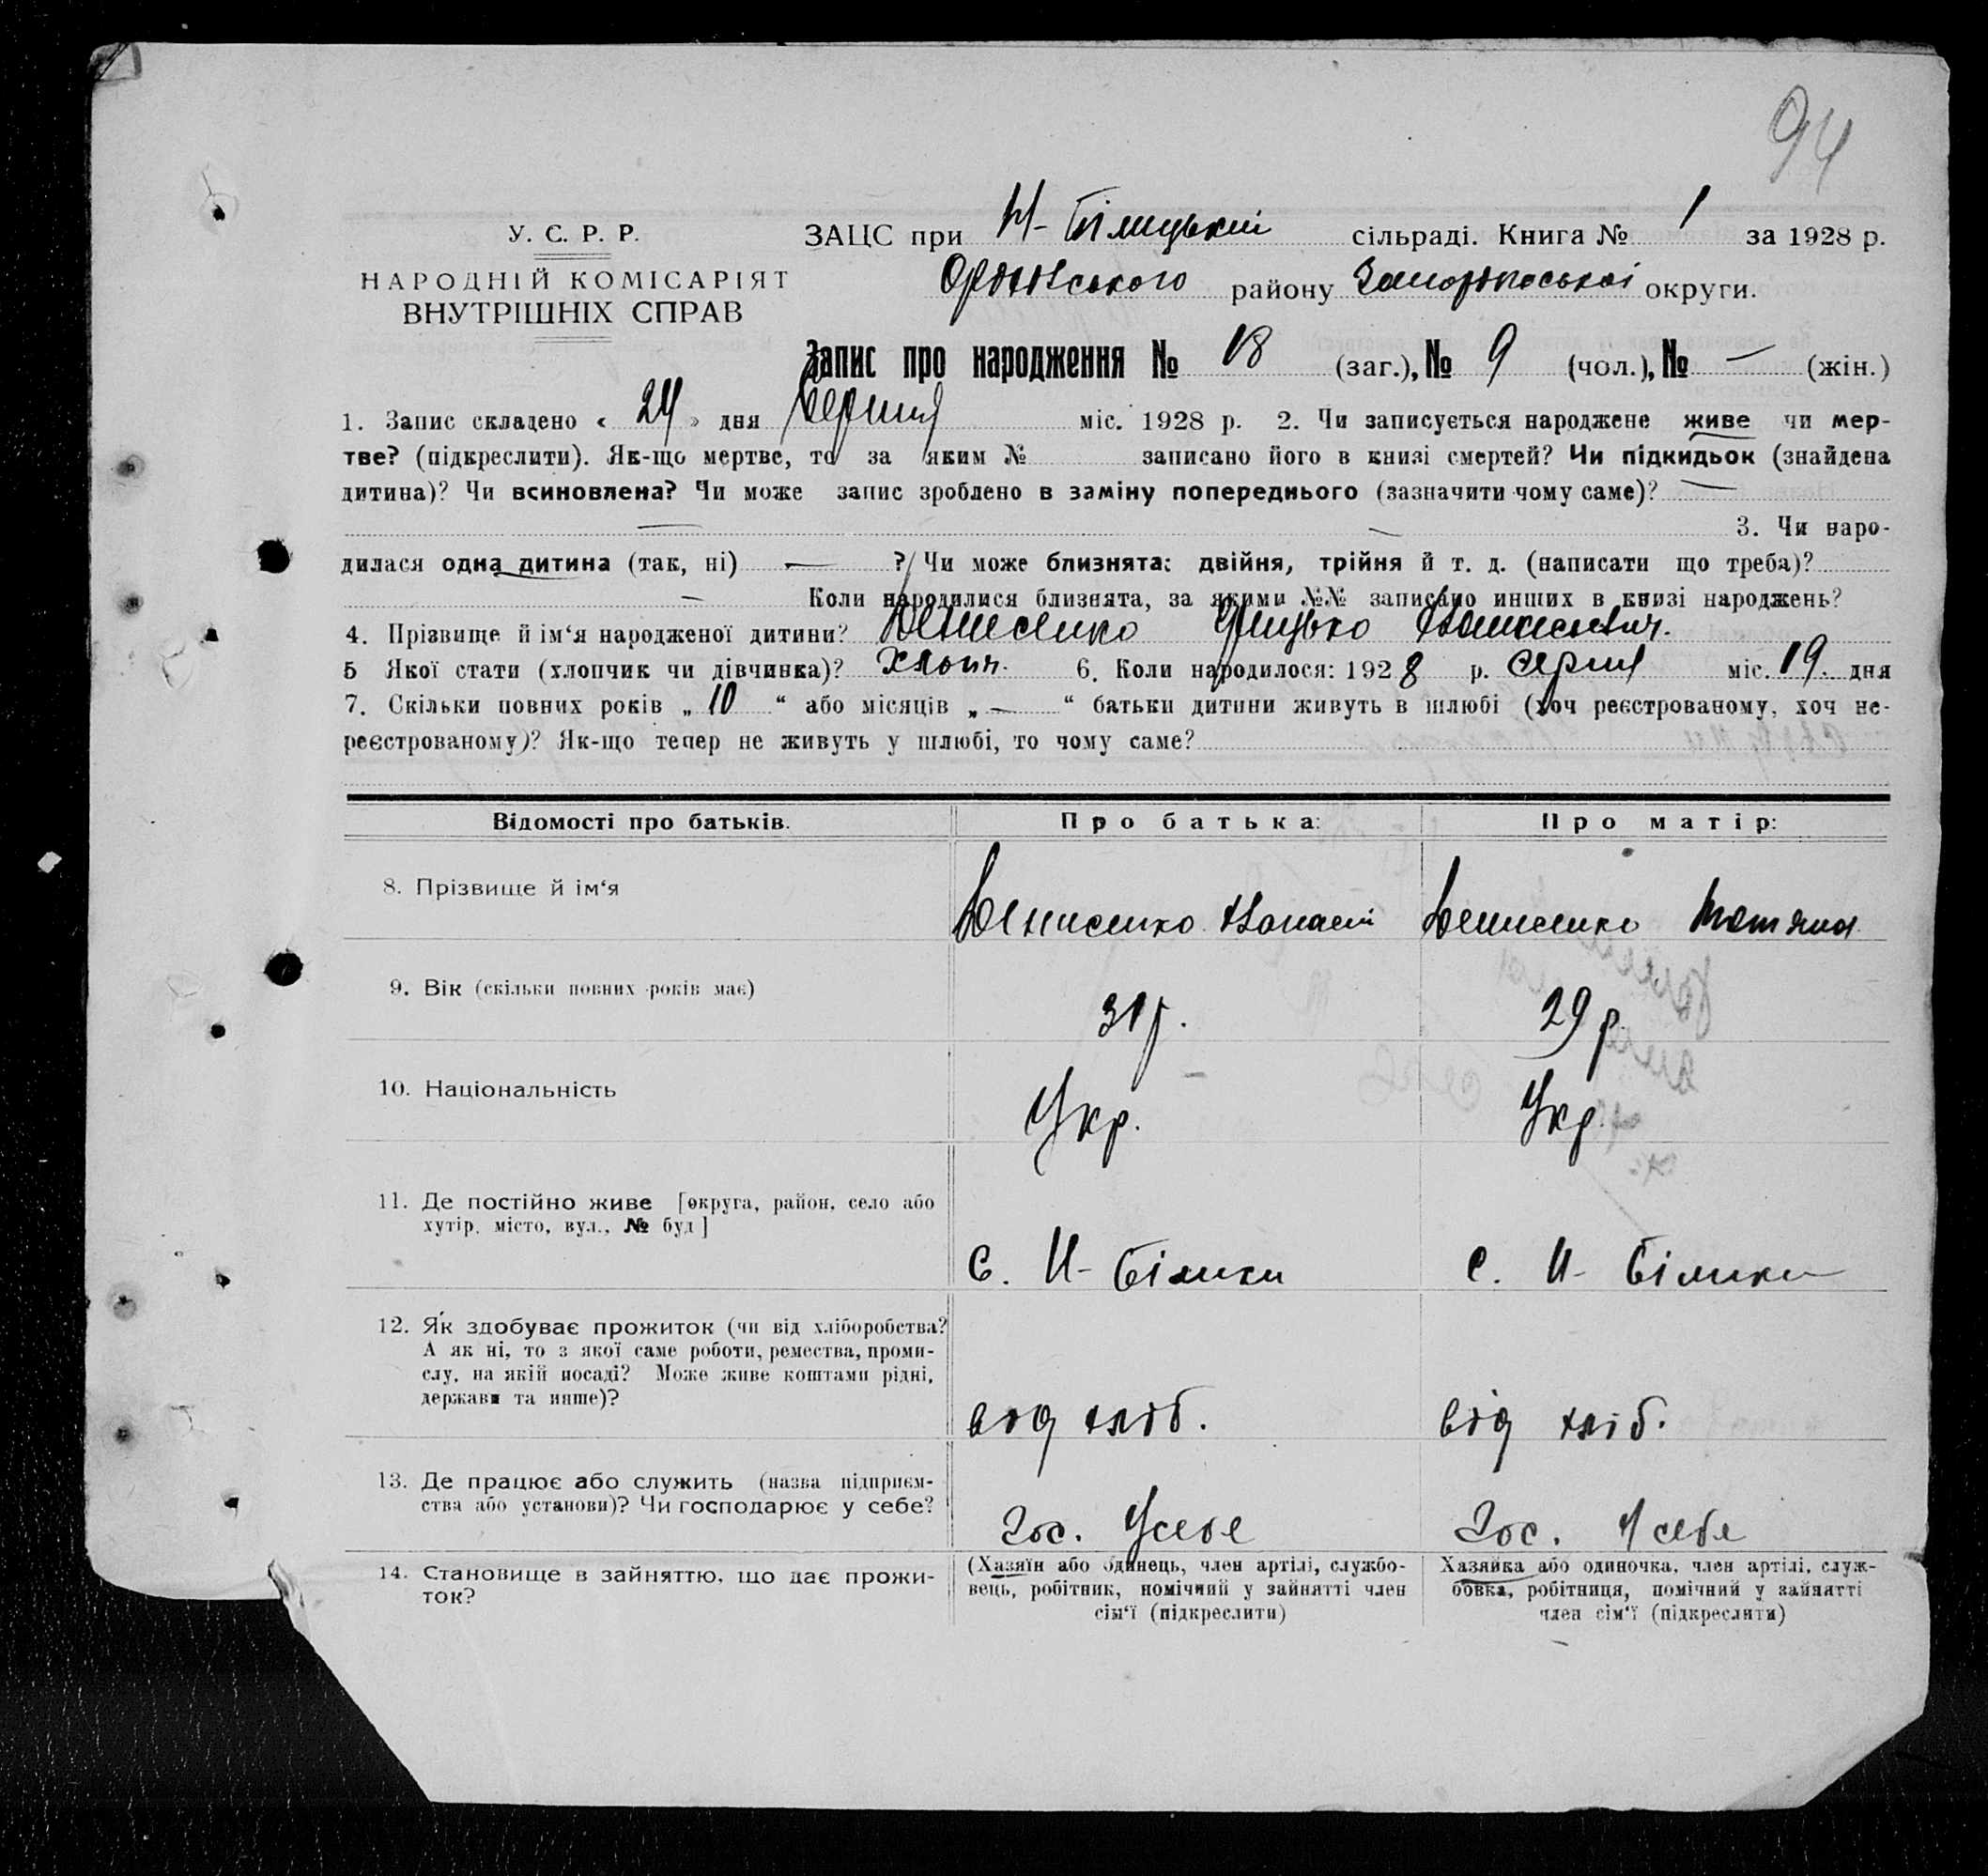 94
У. С. Р. Р.
НАРОДНІЙ КОМІСАРІЯТ
ВНУТРІШНІХ СПРАВ
ЗАЦС при Н-Білицькій сільраді. Книга № 1 за 1928 р.
району Запоріжської округи.
Запис про народження № 18 (заг.), № 9 (чол.), № — (жін.)
1. Запис складено « 24 » дня Серпня міс. 1928 р. 2. Чи записується народжене живе чи мер-
тве? (підкреслити). Як-що мертве, то за яким № записано його в книзі смертей? Чи підкидьок (знайдена
дитина)? Чи всиновлена? Чи може запис зроблено в заміну попереднього (зазначити чому саме)? —
— — 3. Чи наро-
дилася одна дитина (так, ні) — ? Чи може близнята: двійня, трійня й т. д. (написати що треба)?
— Коли народилися близнята, за якими №№ записано инших в книзі народжень?
4. Прізвище й ім‘я народженої дитини? Денисенко Грицько Панасович.
5 Якої стати (хлопчик чи дівчинка)? Хлопч. 6. Коли народилося: 1928 р. Серпня міс. 19. дня
7. Скільки повних років „ 10 “ або місяців „ — “ батьки дитини живуть в шлюбі (хоч реєстрованому, хоч не-
реєстрованому)? Як-що тепер не живуть у шлюбі, то чому саме?
Відомості про батьків. Про батька: Про матір:
8. Прізвище й ім‘я Денисенко Панас Денисенко Тетяна
9. Вік (скільки повних років має) 31 р. 29 р.
10. Національність Укр. Укр.
11. Де постійно живе [округа, район, село або
хутір, місто, вул., № буд] С. Н- Білики С. Н- Білики
12. Як здобуває прожиток (чи від хліборобства?
А як ні, то з якої саме роботи, ремества, проми-
слу, на якій посаді? Може живе коштами рідні,
держави та инше)? від хліб. від хліб.
13. Де працює або служить (назва підприєм-
ства або установи)? Чи господарює у себе? Гос. У себе Гос. У себе
14. Становище в зайняттю, що дає прожи-
ток?
(Хазяїн або одинець, член артілі, службо-
вець, робітник, помічний у зайнятті член
сім‘ї (підкреслити)
Хазяйка або одиночка, член артілі, служ-
бовка, робітниця, помічний у зайнятті
член сім‘ї (підкреслити)